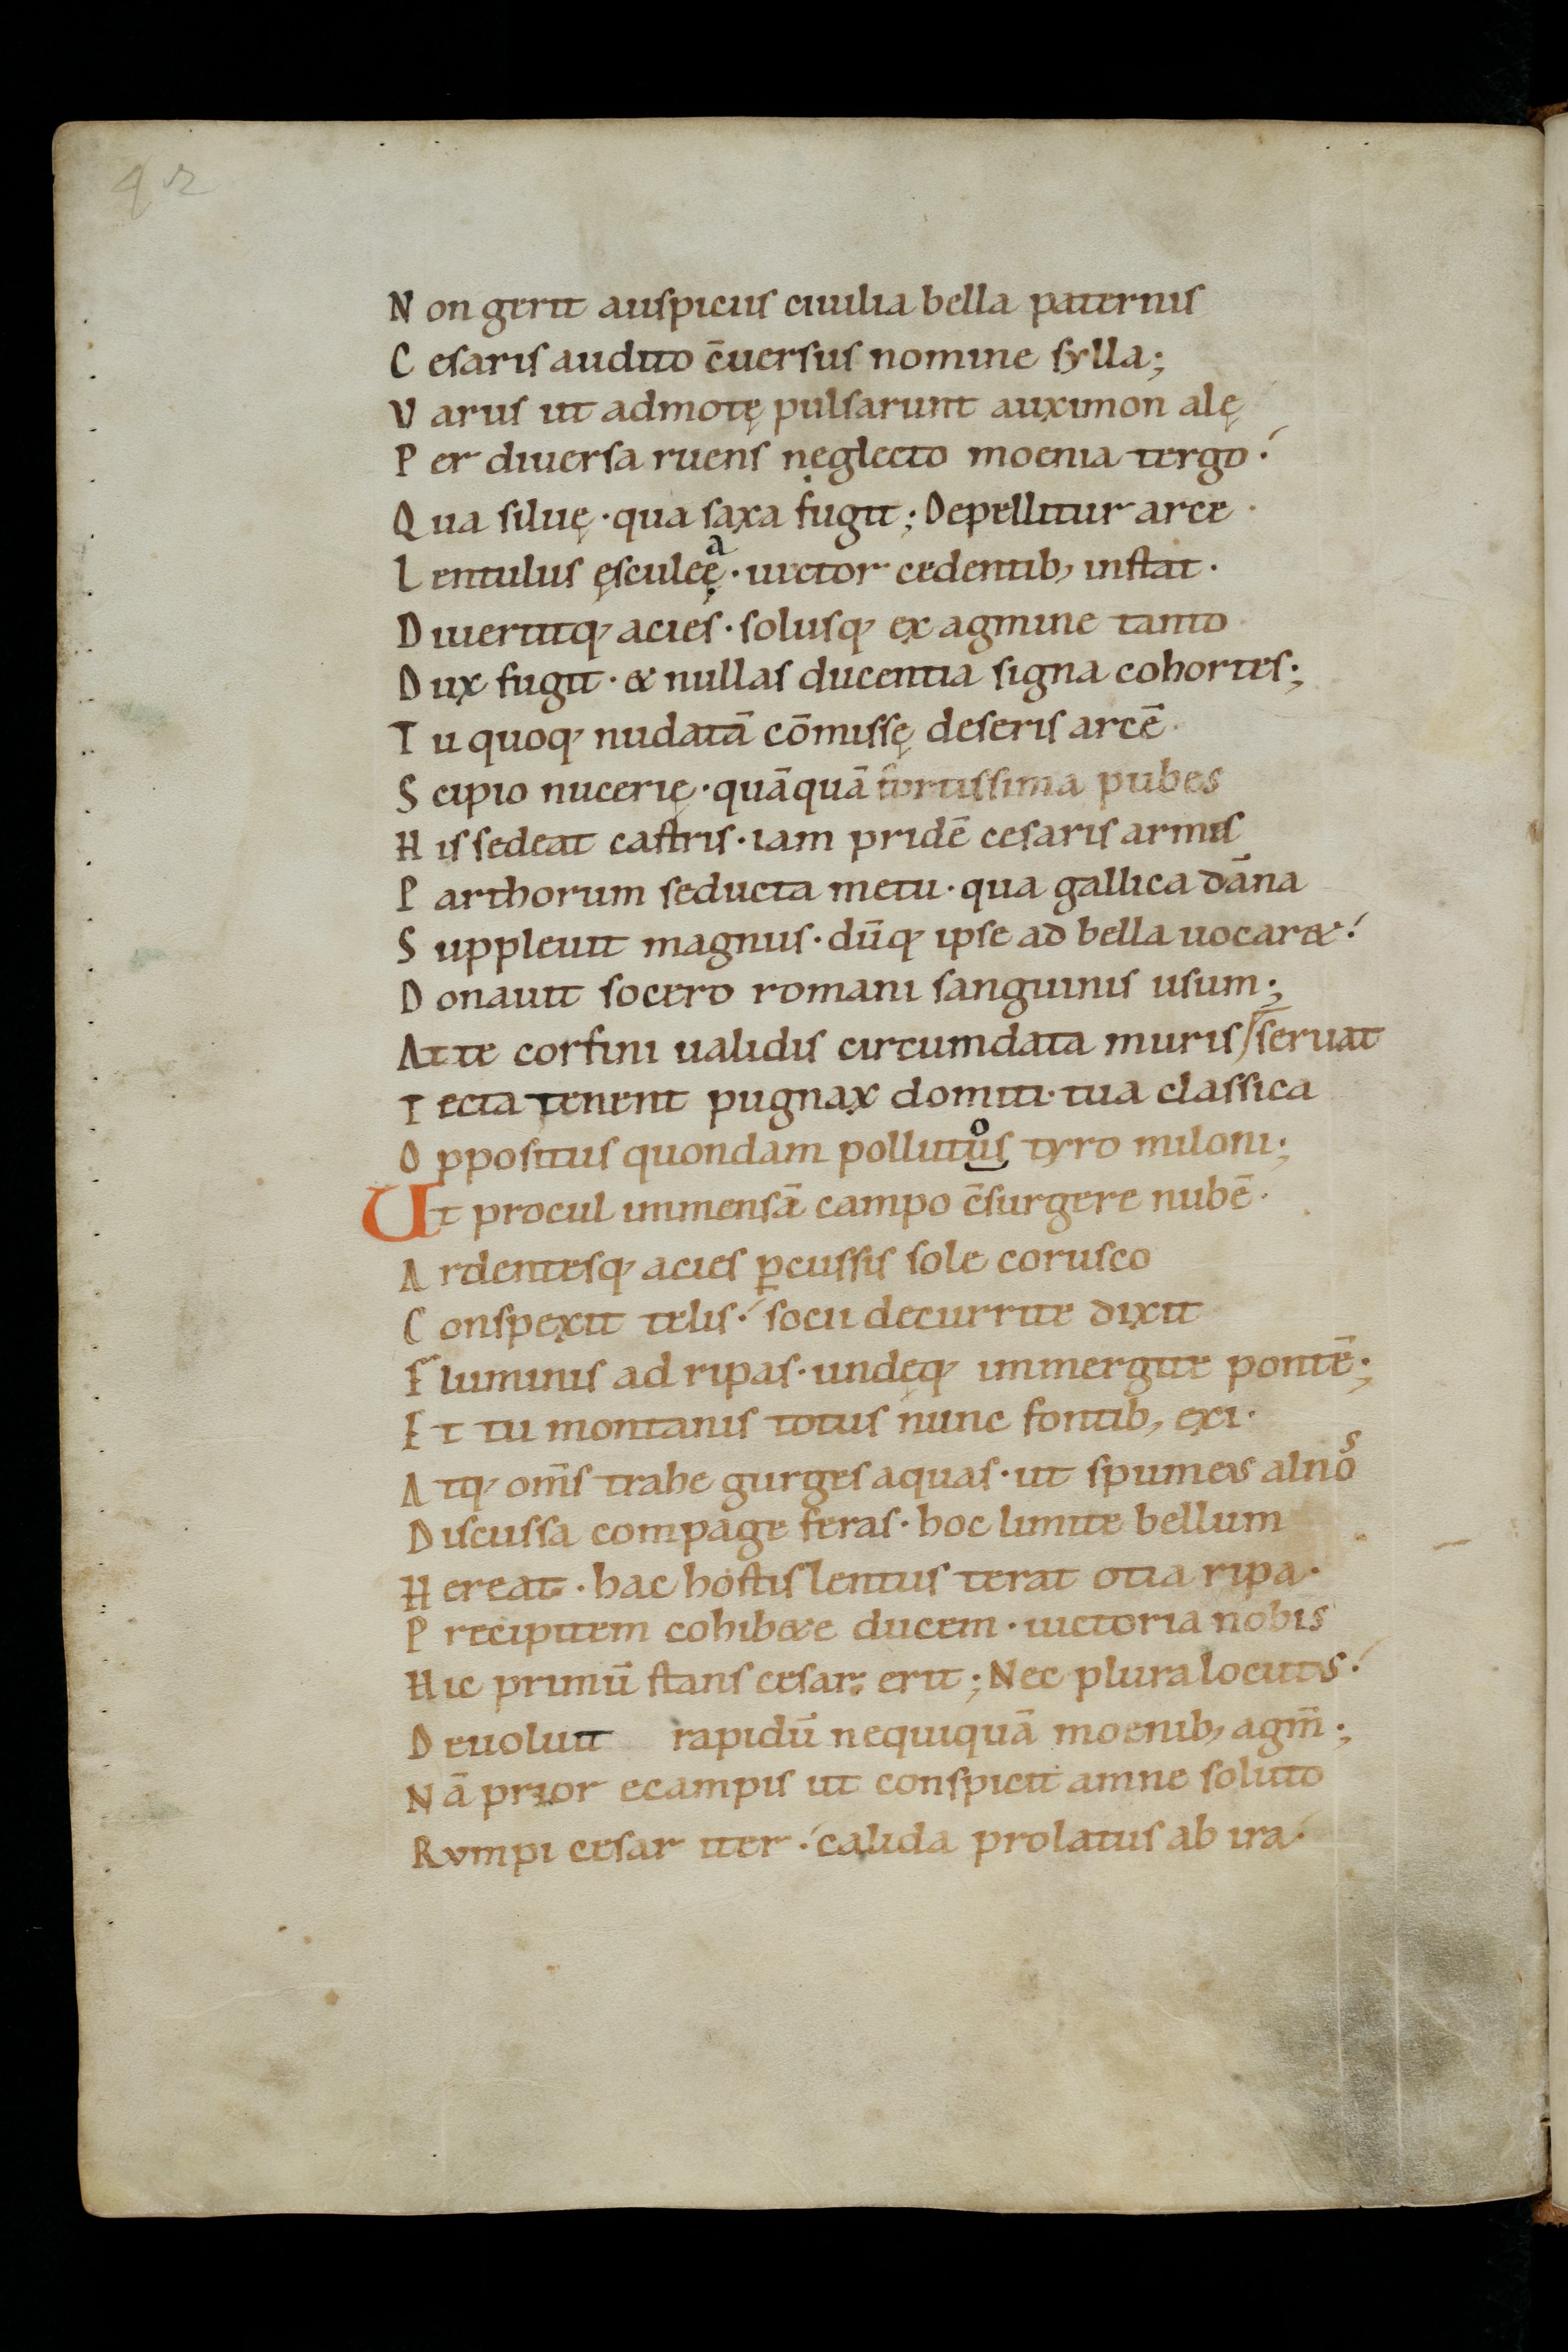 42
Non gerit auspiciis ciuilia bella paternis
Cesaris audito c̄uersus nomine sylla;
Varus ut admotę pulsarunt auximon alę
Per diuersa ruens neglecto moenia tergo·
Qua siluę· qua saxa fugit; Depellitur arce·
Lentulus ęsculeę a· uictor cedentib; instat·
Diuertitq; acies· solusq; ex agmine tanto
Dux fugit· & nullas ducentia signa cohortes;
Tu quoq; nudatā cōmissę deseris arcē·
Scipio nucerię· quāquā firmissima pubes
His sedeat castris· iam pridē cesaris armis
Parthorum seducta metu· qua gallica dāna
Suppleuit magnus· dūq; ipse ad bella uocar&·
Donauit socero romani sanguinis usum;
At te corfini ualidis circumdata muris
Tecta tenent pugnax domiti· tua classica seruat
Oppositus quondam pollutus o tyro miloni;
Ut procul immensā campo c̄surgere nubē·
Ardentesq; acies ꝑcussis sole corusco
Conspexit telis· socii decurrite dixit
Fluminis ad ripas· undęq; immergite pontē;
Et tu montanis totus nunc fontib; exi·
Atq; om̄s trahe gurges aquas· ut spumeis alnos
Discussa compage feras· hoc limite bellum
Hereat· hac hostis lentus terat otia ripa·
Precipitem cohib&e ducem· uictoria nobis
Hic primū stans cesar erit; Nec plura locutus·
Deuoluit rapidū nequiquā moenib; agm̄;
Nā prior e campis ut conspicit amne soluto
Rumpi cesar iter· calida prolatus ab ira·